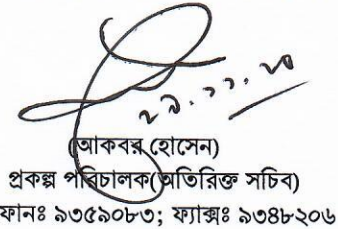 ২৯.১১.২০
(আকবর হোসেন)
প্রকল্প পরিচালক(অতিরিক্ত সচিব)
ফোনঃ ৯৩৫৯০৮৩; ফ্যাক্সঃ ৯৩৪৮২০৬